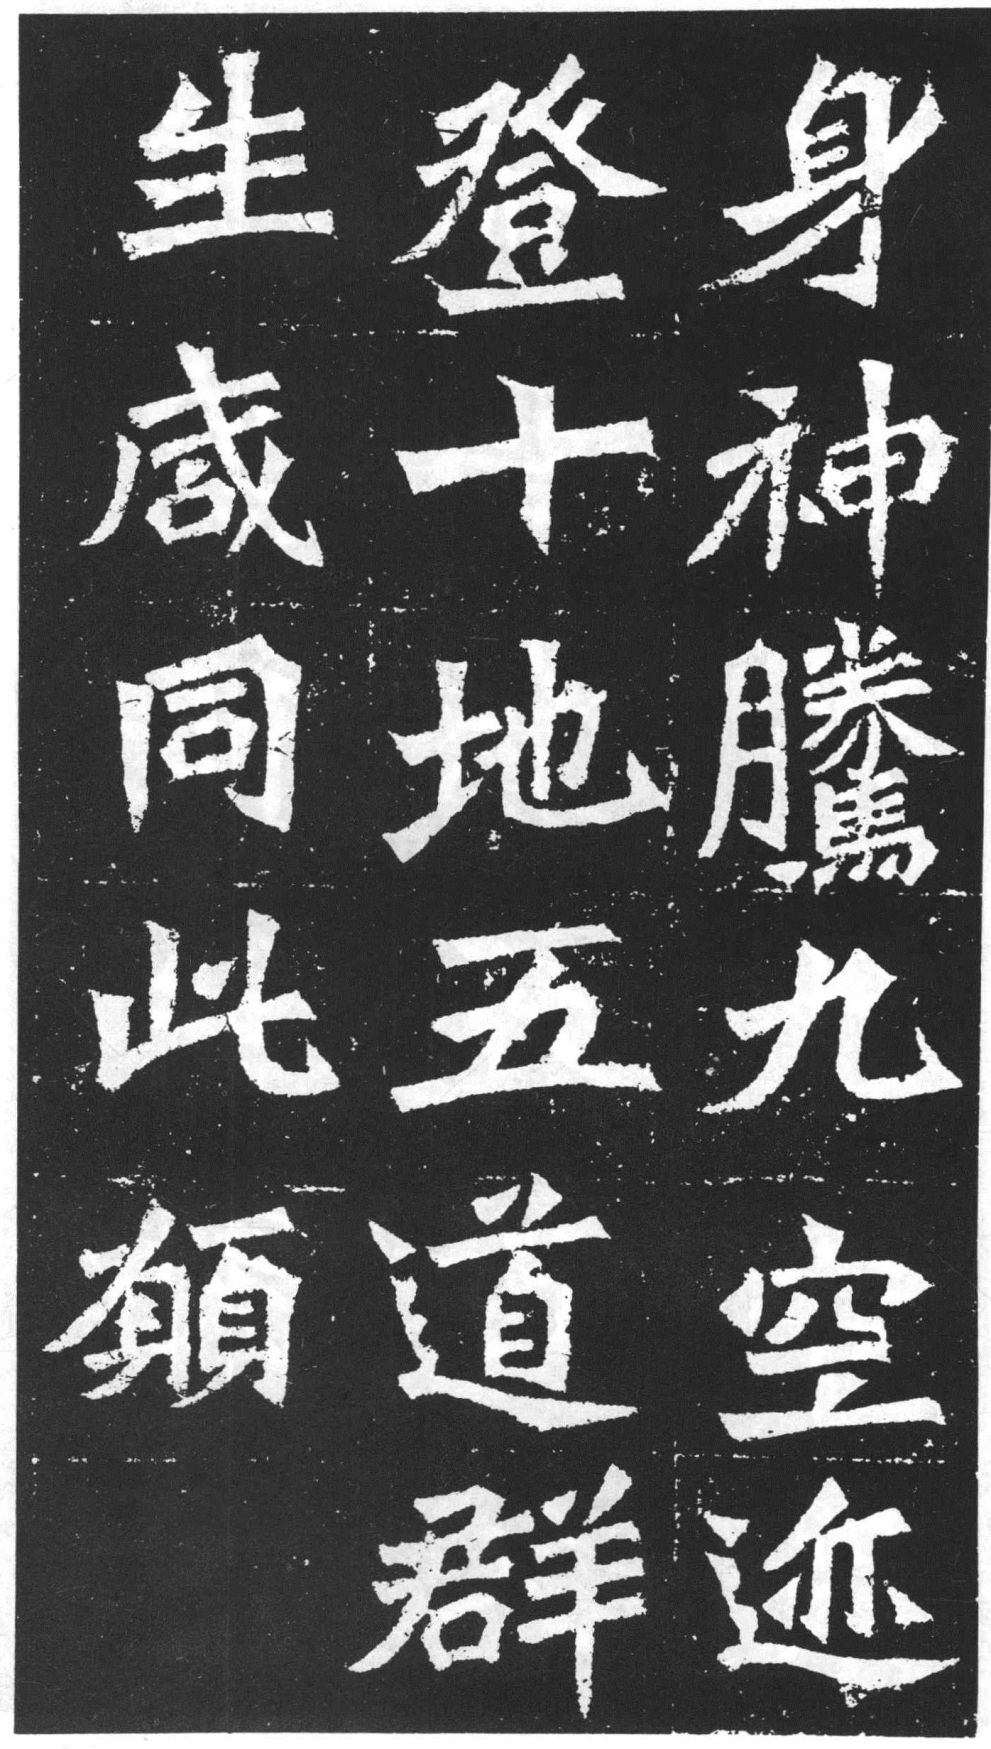 身神騰九空迹
登十地五道群
生咸同此願